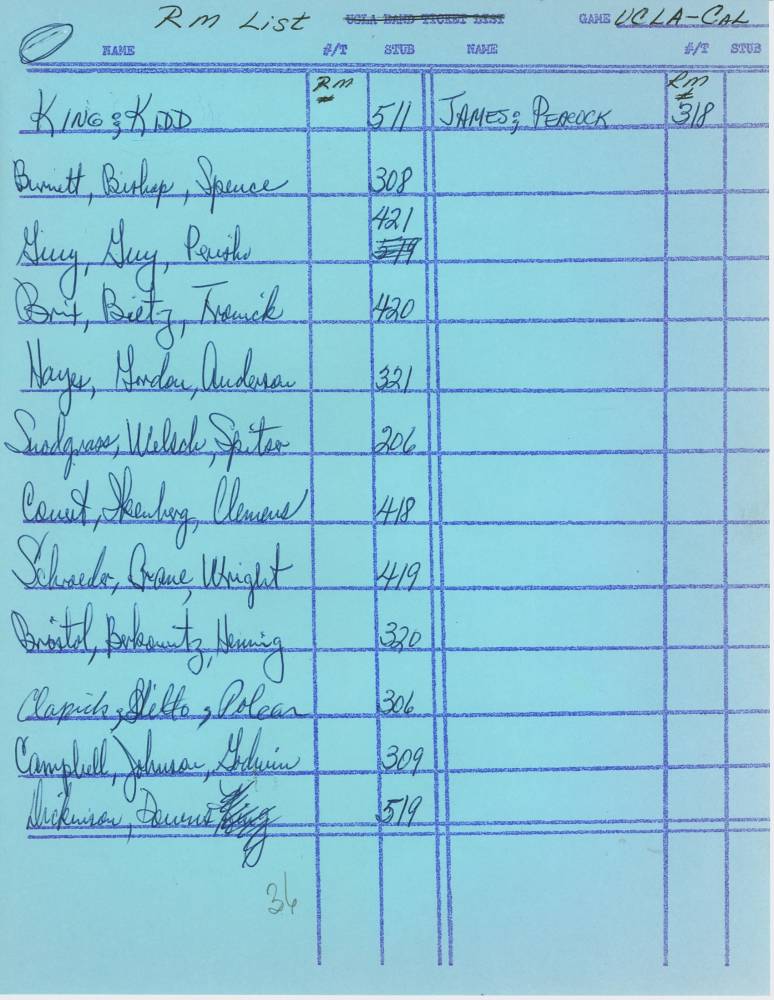 RM LIST UCLA BAND TICKET LIST GAME UCLA-CAL
NAME #/T STUB NAME #/T STUB
RM # RM #
KING & KIDD 511 JAMES & PEACOCK 318
Burnett, Bishop, Spence 308
421
Guy, Guy, Perisho 519
Brix, Bietz, Tronick 420
Hayes, Gordon, Anderson 321
Snodgrass, Welsch, Spitser 206
Covert, Ikenberg, Clemens 418
Schroeder, Crane, Wright 419
Bristol, Berkowitz, Henning 320
306
Campbell, Johnson, Godwin 309
Dickinson, Downs King 519
36